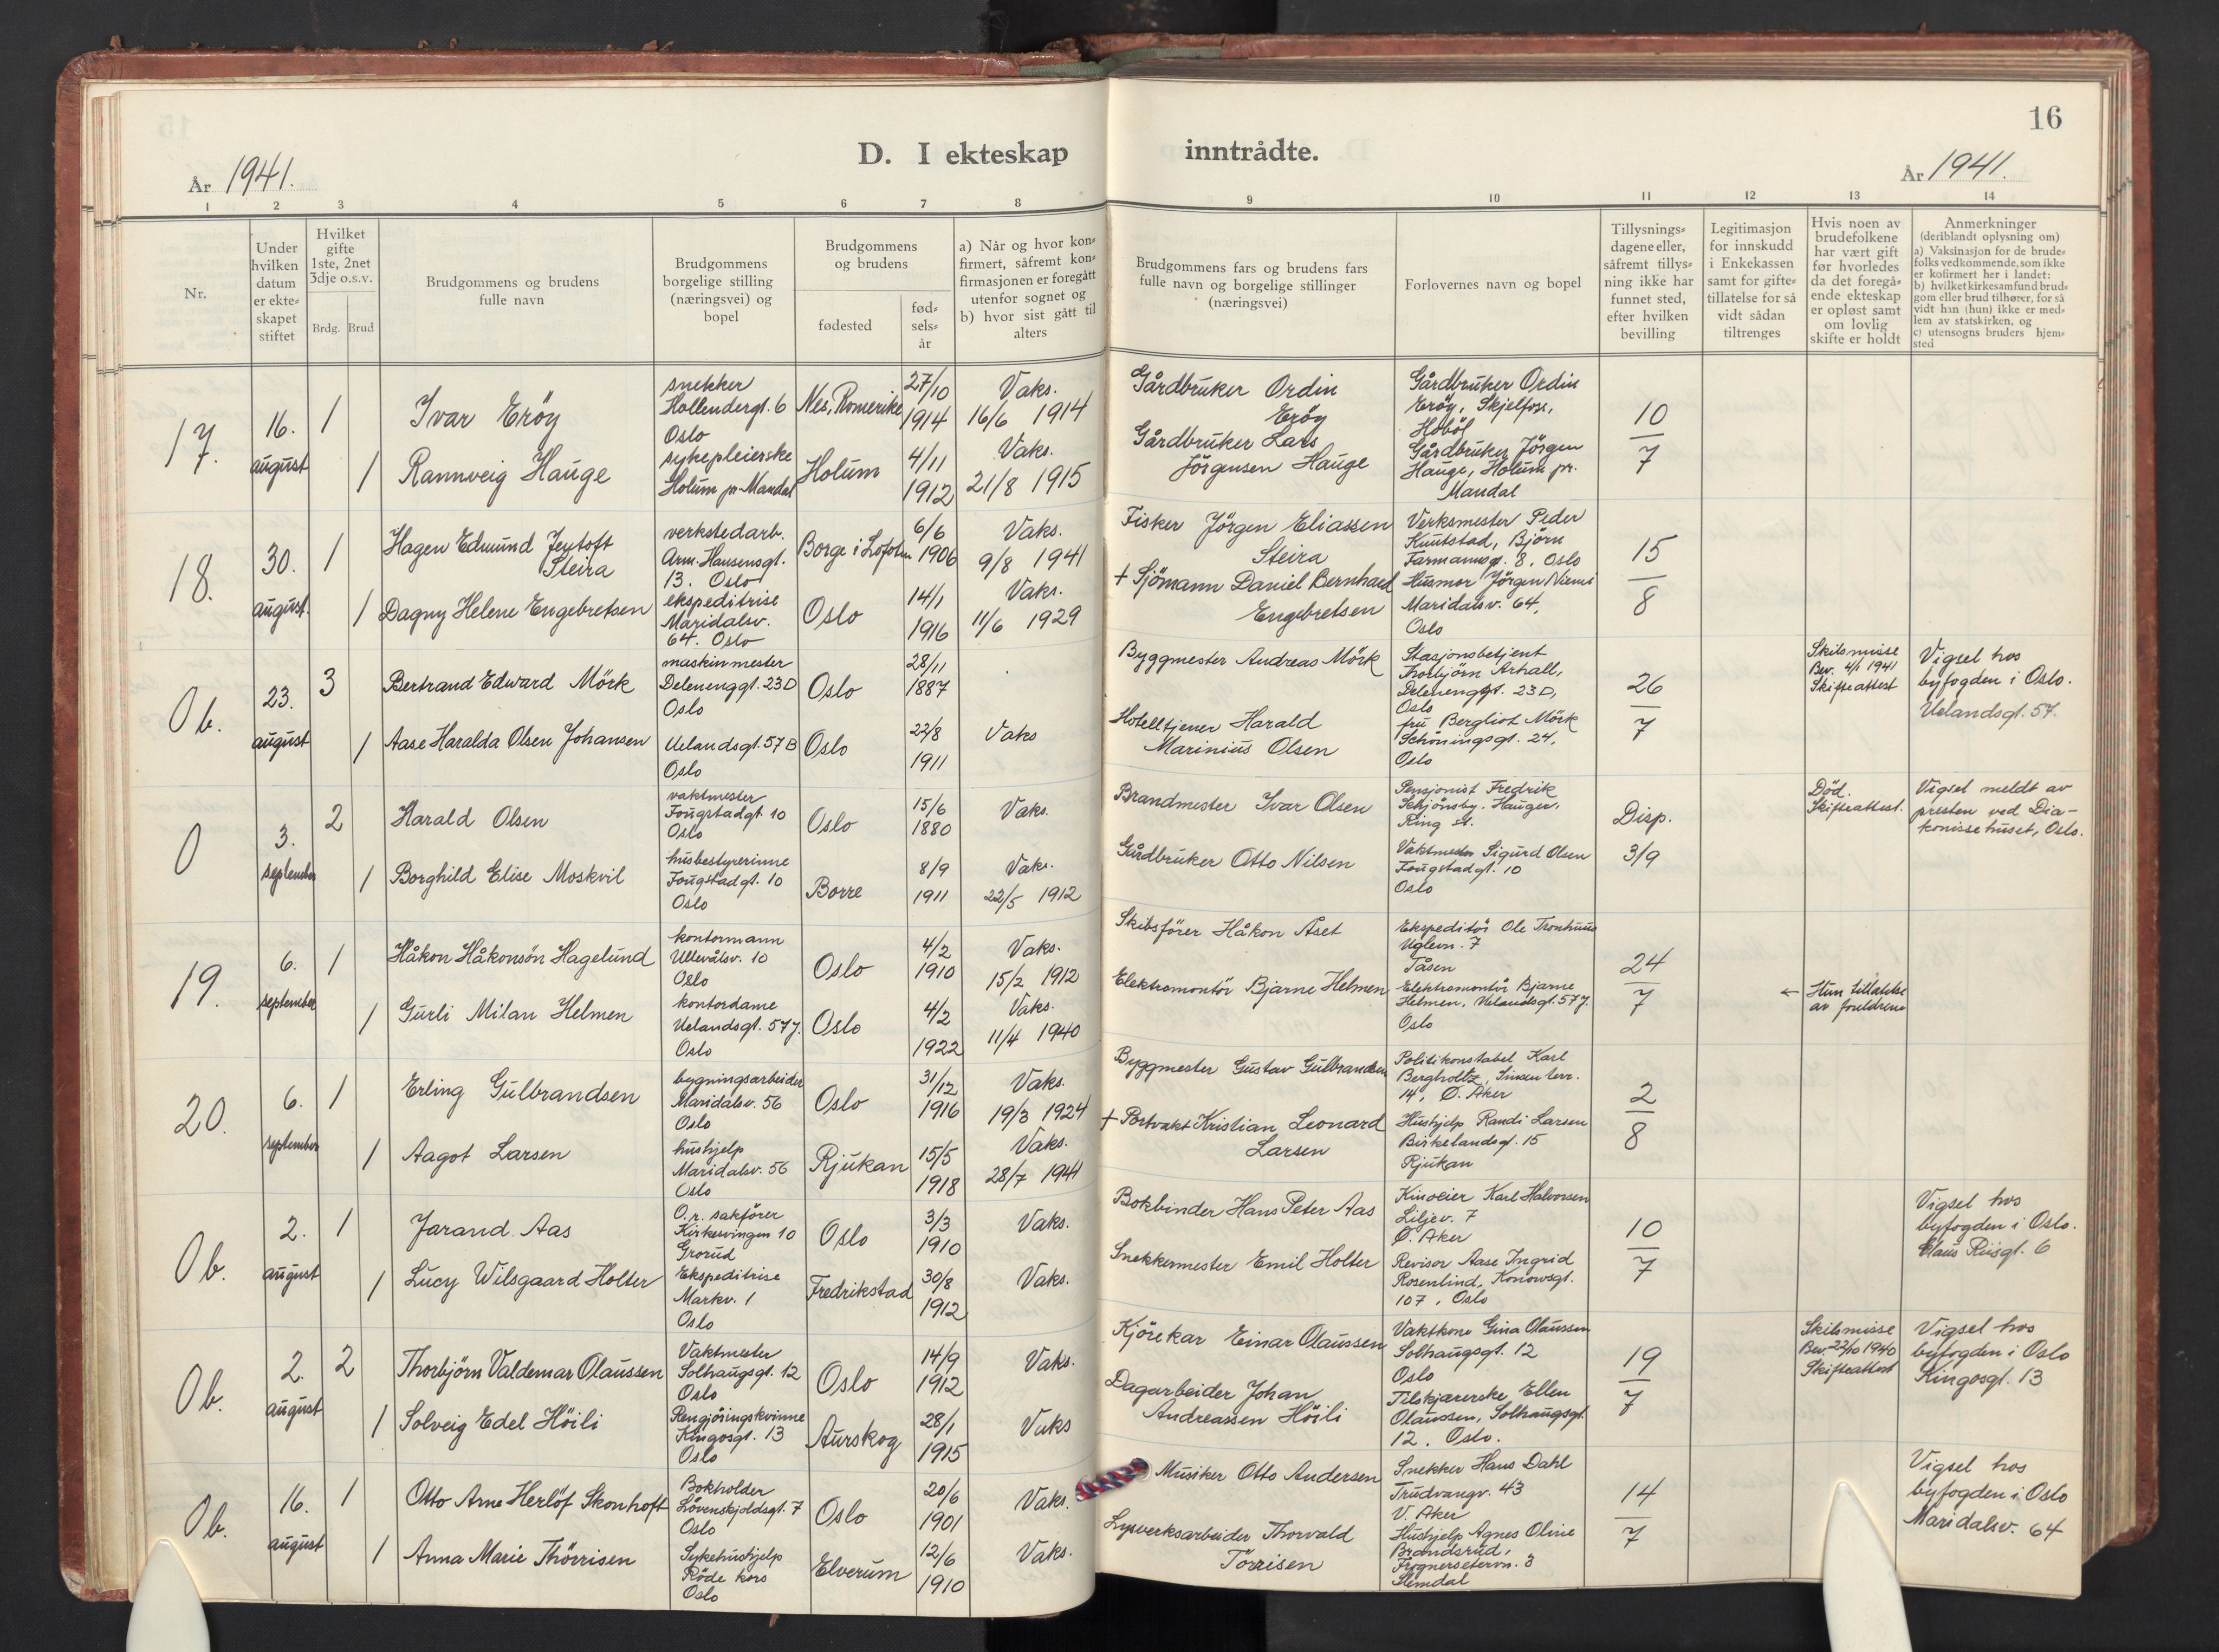 16
D. I ekteskap inntrådte.
År 1941.
År 1941.
1 2 3 4 5 6 7 8 9 10 11 12 13 14
Nr.
Under
hvilken
datum
er ekte-
skapet
stiftet
Hvilket
gifte
1ste, 2net
3dje o.s.v.
Brdg. Brud
Brudgommens og brudens
fulle navn
Brudgommens
borgelige stilling
(næringsvei) og
bopel
Brudgommens
og brudens
fødested
fød-
sels-
år
a) Når og hvor kon-
firmert, såfremt kon-
firmasjonen er foregått
utenfor sognet og
b) hvor sist gått til
alters
Brudgommens fars og brudens fars
fulle navn og borgelige stillinger
(næringsvei)
Forlovernes navn og bopel
Tillysnings-
dagene eller,
såfremt tillys-
ning ikke har
funnet sted,
efter hvilken
bevilling
Legitimasjon
for innskudd
i Enkekassen
samt for gifte-
tillatelse for så
vidt sådan
tiltrenges
Hvis noen av
brudefolkene
har vært gift
før hvorledes
da det foregå-
ende ekteskap
er opløst samt
om lovlig
skifte er holdt
Anmerkninger
(deriblandt oplysning om)
a) Vaksinasjon for de brude-
folks vedkommende, som ikke
er kofirmert her i landet:
b) hvilket kirkesamfund brud-
gom eller brud tilhører, for så
vidt han (hun) ikke er med-
lem av statskirken, og
c) utensogns bruders hjem-
sted
17.
16.
august
1
Ivar Eröy
snekker
Hollendergt. 6
Oslo
Nes, Romerike
27/10
1914
Vaks.
16/6 1914
Gårdbruker Ordin
Eröy
Gårdbruker Ordin
Eröy, Skjelfoss,
Hobøl
10
7
1
Rannveig Hauge
sykepleierske
Holum pr. Mandal
Holum
4/11
1912
Vaks.
21/8 1915
Gårdbruker Lars
Jörgensen Hauge
Gårdbruker Jörgen
Hauge, Holum pr.
Mandal
18.
30.
august.
1
Hagen Edmund Jentoft
Steira
verkstedarb.
Arm. Hansensgt.
13. Oslo
Borge i Lofoten
6/6
1906
Vaks.
9/8 1941
Fisker Jörgen Eliassen
Steira
Verksmester Peder
Knutstad, Björn
Farmannsg. 8, Oslo
15
8
1
Dagny Helene Engebretsen
ekspeditrise
Maridalsv.
64. Oslo
Oslo
14/1
1916
Vaks.
11/6 1929
+ Sjömann Daniel Bernhard
Engebretsen
Husmor Jörgen Niemi
Maridalsv. 64,
Oslo
Ob.
23.
august
3
Bertrand Edward Mörk
maskinmester
Delenenggt. 23D
Oslo
Oslo
28/11
1887
Byggmester Andreas Mörk
Stasjonsbetjent
Torbjörn Arhall,
Delenenggt. 23D,
Oslo
26
7
Skilsmisse
Bev. 4/1 1941
Skifteattest
Vigsel hos
byfogden i Oslo.
Uelandsgt. 57.
1
Aase Haralda Olsen Johansen
Uelandsgt. 57B
Oslo
Oslo
22/8
1911
Vaks
Hotelltjener Harald
Marinius Olsen
fru Bergliot Mörk
Schöningsgt. 24,
Oslo
0
3.
september
2
Harald Olsen
vaktmester
Fougstadgt. 10
Oslo
Oslo
15/6
1880
Vaks.
Brandmester Ivar Olsen
Pensjonist Fredrik
Schjönsby. Hauger,
Ring st.
Disp.
3/9
Död.
Skifteattest.
Vigsel meldt av
presten ved Dia-
konissehuset, Oslo.
1
Borghild Elise Moskvil
husbestyrerinne
Fougstadgt. 10
Oslo
Borre
8/9
1911
Vaks.
22/5 1912
Gårdbruker Otto Nilsen
Vaktmester Sigurd Olsen
Fougstadgt. 10
Oslo
19.
6.
september
1
Håkon Håkonsön Hagelund
kontormann
Ullevålsv. 10
Oslo
Oslo
4/2
1910
Vaks.
15/2 1912
Skibsförer Håkon Åset
Ekspeditör Ole Tronhuus
Uglevn. 7
Tåsen
24
7
← Hun tillatelse
av foreldrene
1
Gurli Milan Helmen
kontordame
Uelandsgt. 57J.
Oslo
Oslo
4/2
1922
Vaks.
11/4 1940
Elektromontör Bjarne Helmen
Elektromontör Bjarne
Helmen, Uelandsgt. 57J.
Oslo
20.
6.
september
1
Erling Gulbrandsen
bygningsarbeider
Maridalsv. 56
Oslo
Oslo
31/12
1916
Vaks.
19/3 1924
Byggmester Gustav Gulbrandsen
Politikonstabel Karl
Bergholtz, Sinsen terr.
14, Ø. Aker
2
8
1
Aagot Larsen
hushjelp
Maridalsv. 56
Oslo
Rjukan
15/5
1918
Vaks.
28/7 1941
+ Portvakt Kristian Leonard
Larsen
Hushjelp Randi Larsen
Birkelandsgt. 15
Rjukan
Ob.
2.
august
1
Jarand Aas
O.r. sakförer
Kirkesvingen 10
Grorud
Oslo
3/3
1910
Vaks.
Bokbinder Hans Peter Aas
Kinoeier Karl Halvorsen
Liljev. 7
Ø. Aker
10
7
Vigsel hos
byfogden i Oslo.
Claus Riisgt. 6
1
Lucy Wilsgaard Holter
Ekspeditrise
Markv. 1
Oslo
Fredrikstad
30/8
1912
Vaks.
Snekkermester Emil Holter
Revisor Aase Ingrid
Rosenlind, Konowsgt.
107, Oslo
Ob.
2.
august
2
Thorbjörn Valdemar Olaussen
Vaktmester
Solhaugsgt. 12
Oslo
Oslo
14/9
1912
Vaks.
Kjörekar Einar Olaussen
Vaktkone Gina Olaussen
Solhaugsgt. 12
Oslo
19
7
Skilsmisse
Bev. 22/10 1940
Skifteattest
Vigsel hos
byfogden i Oslo
Kingosgt. 13
1
Solveig Edel Höili
Rengjöringskvinne
Kingosgt. 13
Oslo
Aurskog
28/1
1915
Vaks
Dagarbeider Johan
Andreassen Höili
Tilskjærerske Ellen
Olaussen, Solhaugsgt.
12. Oslo.
Ob.
16.
august
1
Otto Arne Herlöf Skonhoft
Bokholder
Lövenskjoldsgt. 7
Oslo
Oslo
20/6
1901
Vaks.
Musiker Otto Andersen
Snekker Hans Dahl
Trudvangv. 43
V. Aker
14
7
Vigsel hos
byfogden i Oslo
Maridalsv. 64
1
Anna Marie Thörrisen
Sykehushjelp
Röde kors
Oslo
Elverum
12/6
1910
Vaks.
Lysverksarbeider Thorvald
Törrisen
Hushjelp Agnes Oline
Brandsrud,
Frognerseterv. 3
Slemdal